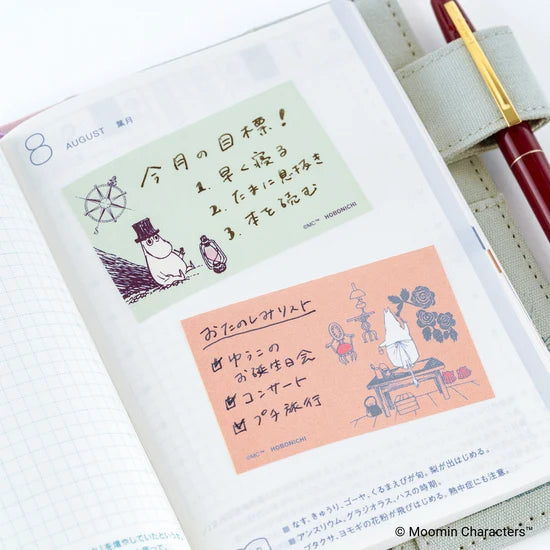 8 AUGUST 葉月
今月の目標!
1. 早く寝る
2. たまに息抜き
3. 本を読む
©MC™ HOBONICHI
おたのしみリスト
ゆうこの
お誕生日会
コンサート
プチ旅行
©MC™ HOBONICHI
なす、きゅうり、ゴーヤ、くるまえびが旬。梨が出はじめる。
アンスリウム、グラジオラス、ハスの時期。
ブタクサ、ヨモギの花粉が飛びはじめる。熱中症にも注意。
© Moomin Characters™